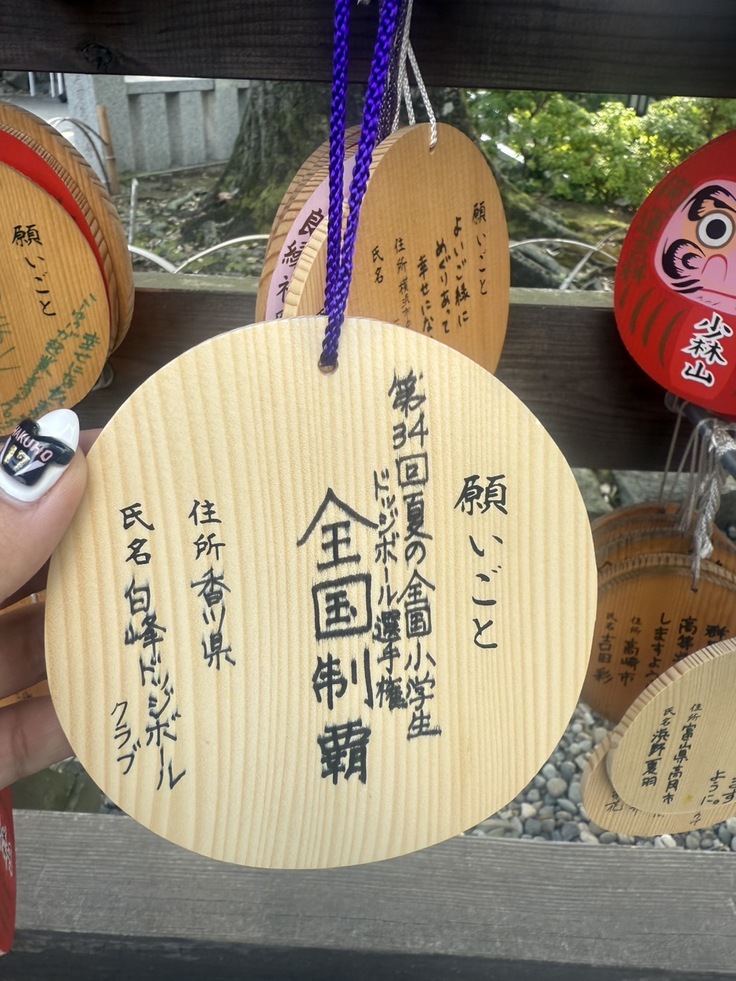 願いごと
第34回夏の全国小学生
ドッジボール選手権
全国制覇
住所 香川県
氏名 白峰ドッジボール
クラブ
願いごと
よいご縁に
めぐりあって
幸せにな
住所 横浜市
氏名
願いごと
少林山
住所 高崎市
氏名 吉田彩
しますよ
ます
ように。
住所 富山県高岡市
氏名 浜野夏羽
HAKUHO
17